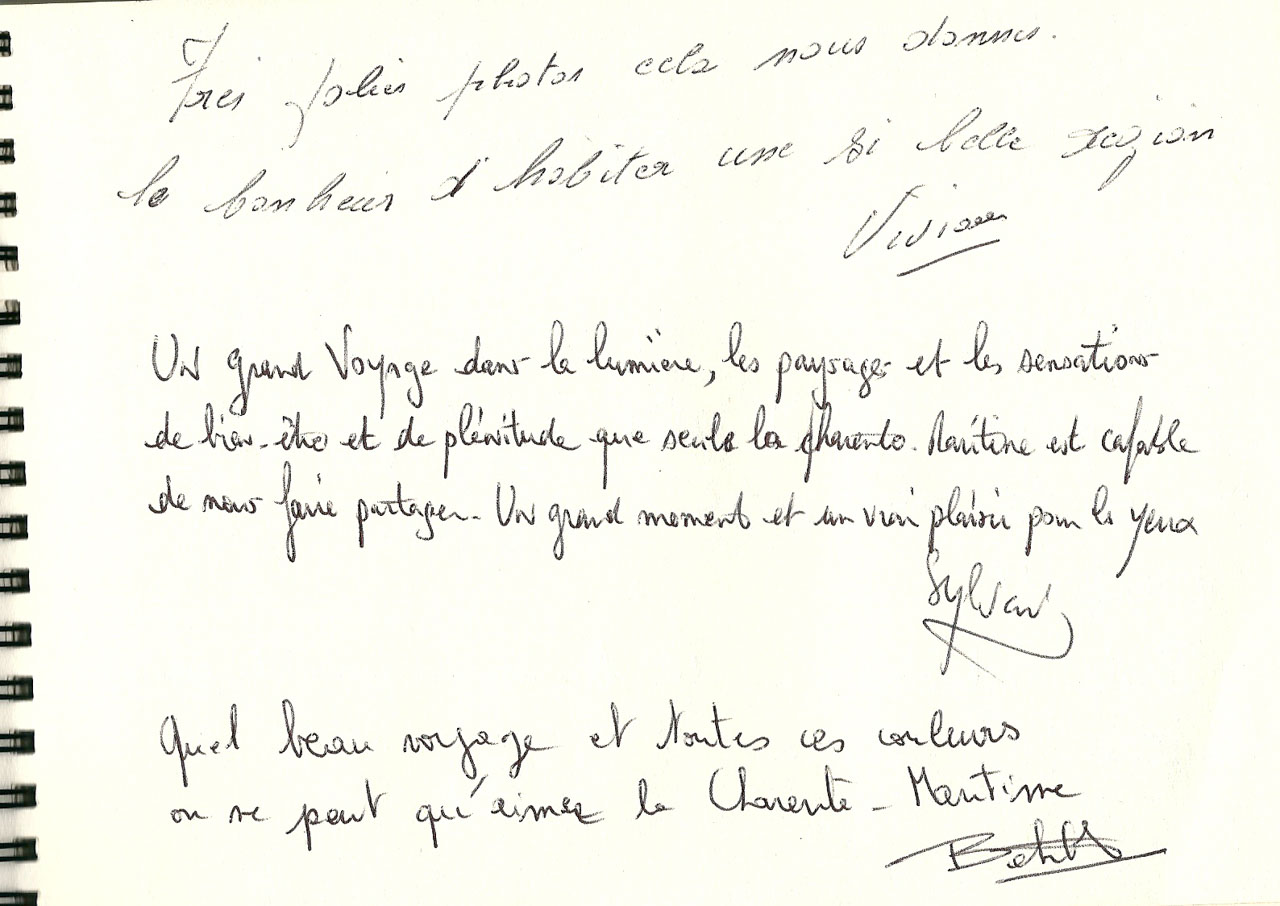 Très jolies photos cela nous donnes.
le bonheur d'habiter une si belle région
Viviane
Un grand Voyage dans la lumière, les paysages et les sensations
de bien-être et de plénitude que seule la Charente-Maritime est capable
de nous faire partager. Un grand moment et un vrai plaisir pour les yeux
Sylvain
Quel beau voyage et toutes ces couleurs
on ne peut qu'aimez la Charente-Maritime